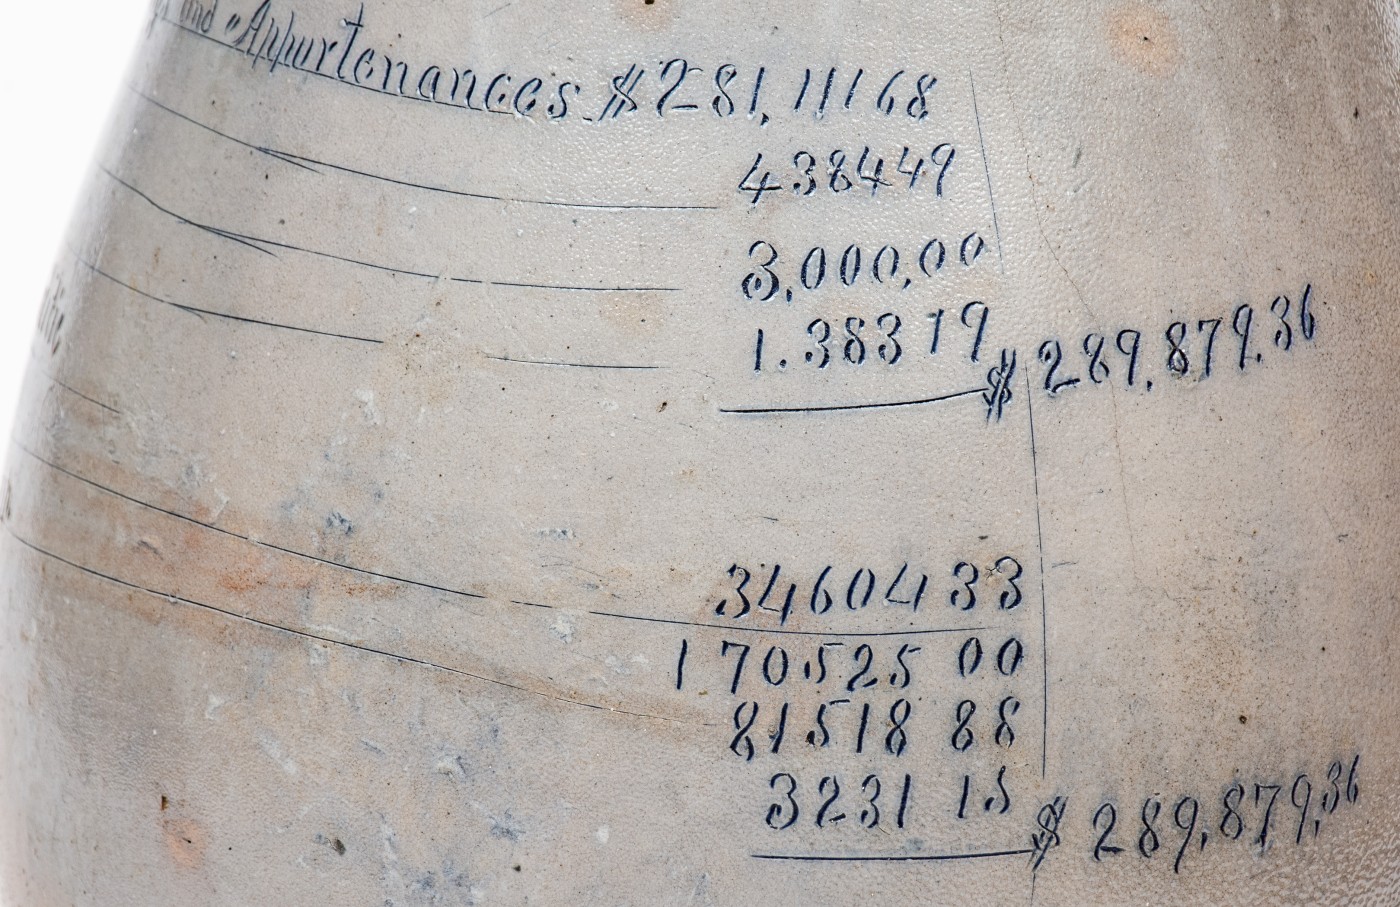 and "Appurtenances $281,11168
438449
3,000,00
1.38319
$ 289,879,36
34604 33
170525 00
81518 88
3231 15
$ 289,879,36